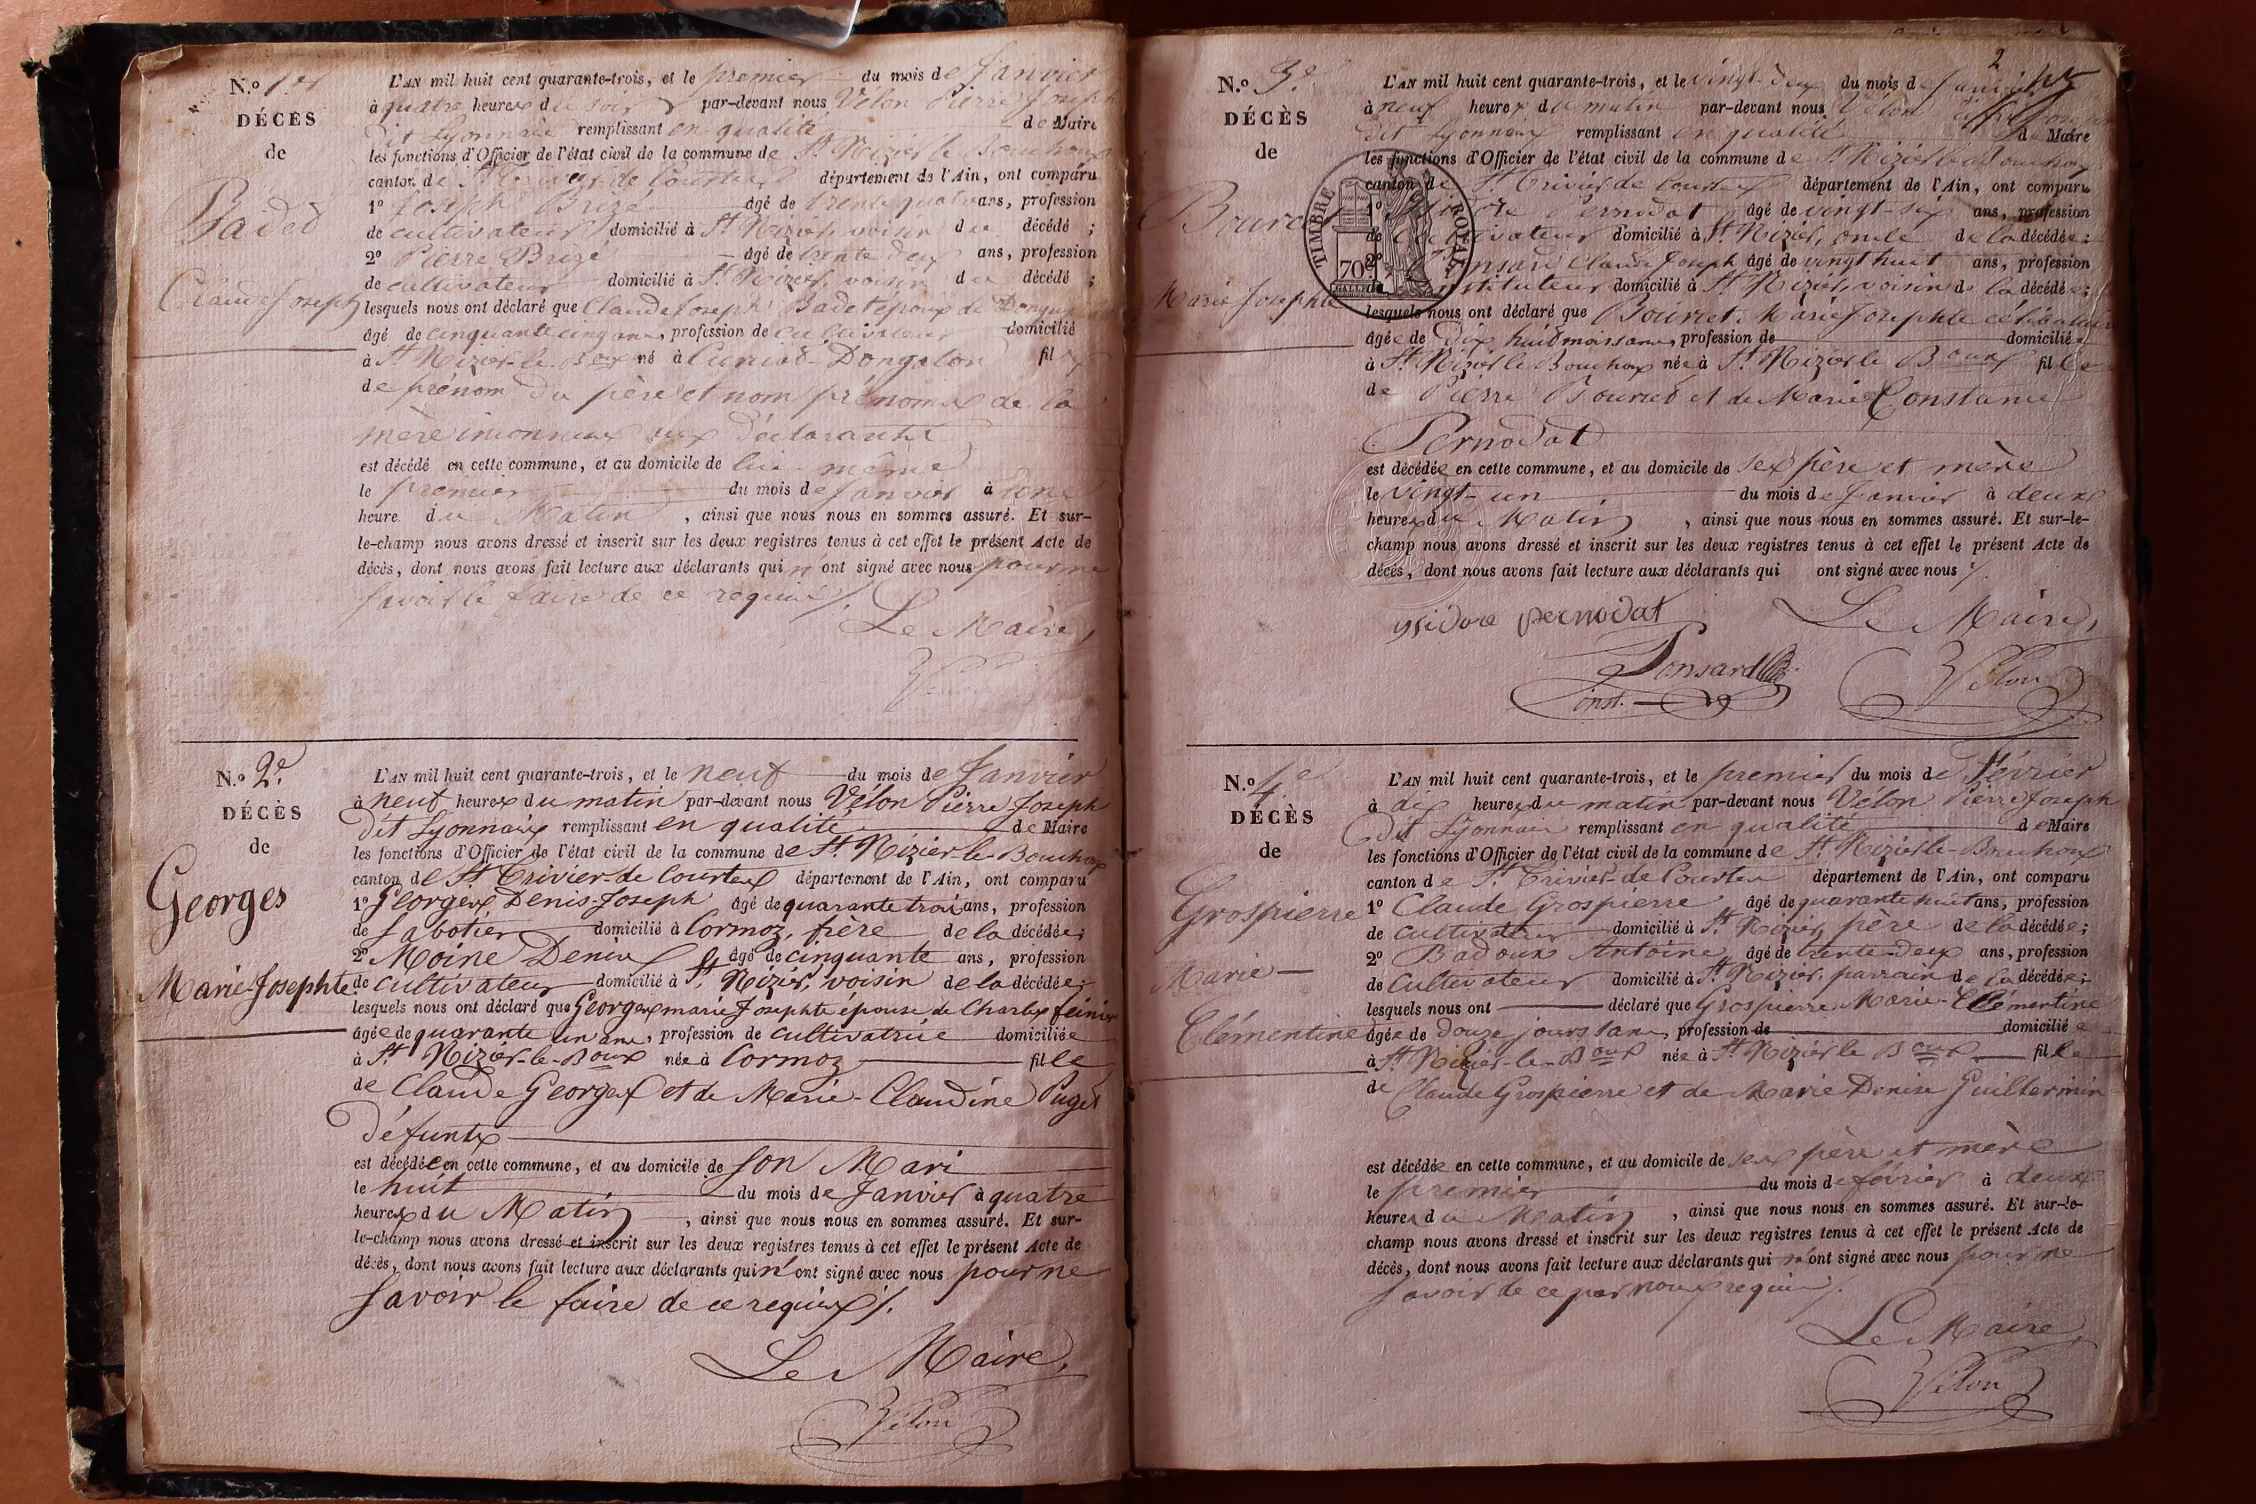 N.º 1er
DÉCÈS
de
Badet
Claude Joseph
L'AN mil huit cent quarante-trois, et le premier du mois de Janvier
à quatre heures du soir par-devant nous Vélon Pierre Joseph
dit Lyonnais remplissant en qualité de Maire
les fonctions d'Officier de l'état civil de la commune de St Nizier le Bouchoux
canton de St Trivier de Courtes département de l'Ain, ont comparu
1º Joseph Brizé âgé de trente quatre ans, profession
de cultivateur domicilié à St Nizier, voisin du décédé ;
2º Pierre Brizé âgé de trente deux ans, profession
de cultivateur domicilié à St Nizier, voisin du décédé ;
lesquels nous ont déclaré que Claude Joseph Badet époux de
âgé de cinquante cinq ans, profession de cultivateur domicilié
à St Nizier-le-Boux né à Curciat-Dongalon fil
de prénom du père et nom prénoms de la
mère inconnus aux déclarants
est décédé en cette commune, et au domicile de lui-même
le premier du mois de Janvier à une
heure du Matin, ainsi que nous nous en sommes assuré. Et sur-
le-champ nous avons dressé et inscrit sur les deux registres tenus à cet effet le présent Acte de
décès, dont nous avons fait lecture aux déclarants qui n'ont signé avec nous pour ne
savoir le faire de ce requis /.
Le Maire,
Vélon
N.º 2e
DÉCÈS
de
Georges
Marie-Josephte
L'AN mil huit cent quarante-trois, et le neuf du mois de Janvier
à neuf heures du matin par-devant nous Vélon Pierre Joseph
dit Lyonnais remplissant en qualité de Maire
les fonctions d'Officier de l'état civil de la commune de St Nizier-le-Bouchoux
canton de St Trivier-de Courtes département de l'Ain, ont comparu
1º Georges Denis-Joseph âgé de quarante trois ans, profession
de Sabotier domicilié à Cormoz, frère de la décédée;
2º Moine Denis âgé de cinquante ans, profession
de cultivateur domicilié à St Nizier, voisin de la décédée;
lesquels nous ont déclaré que Georges marie Josephte épouse de Charles
âgée de quarante un ans, profession de cultivatrice domiciliée
à St Nizier-le-Boux née à Cormoz fille
de Claude Georges et de Marie-Claudine Puget
défunts
est décédée en cette commune, et au domicile de son Mari
le huit du mois de Janvier à quatre
heures du Matin, ainsi que nous nous en sommes assuré. Et sur-
le-champ nous avons dressé et inscrit sur les deux registres tenus à cet effet le présent Acte de
décès, dont nous avons fait lecture aux déclarants qui n'ont signé avec nous pour ne
savoir le faire de ce requis /.
Le Maire,
Vélon
2
N.º 3e
DÉCÈS
de
Bourcet
Marie Josephte
TIMBRE ROYAL
70c
L'AN mil huit cent quarante-trois, et le vingt-deux du mois de Janvier
à neuf heures du matin par-devant nous Vélon
dit Lyonnais remplissant en qualité de Maire
les fonctions d'Officier de l'état civil de la commune de St Nizier le Bouchoux
canton de St Trivier de Courtes département de l'Ain, ont comparu
1º Isidore Pernodat âgé de vingt-six ans, profession
de cultivateur domicilié à St Nizier, oncle de la décédée;
2º Ponsard Claude Joseph âgé de vingt huit ans, profession
de instituteur domicilié à St Nizier, voisin de la décédée;
lesquels nous ont déclaré que Bourcet Marie Josephte célibataire
âgée de dix huit mois sans profession de domiciliée
à St Nizier le Bouchoux née à St Nizier le Boux fille
de Pierre Bourcet et de Marie Constance
Pernodat
est décédée en cette commune, et au domicile de ses père et mère
le vingt-un du mois de Janvier à deux
heures du Matin, ainsi que nous nous en sommes assuré. Et sur-le-
champ nous avons dressé et inscrit sur les deux registres tenus à cet effet le présent Acte de
décès, dont nous avons fait lecture aux déclarants qui ont signé avec nous /.
ysidore pernodat
Le Maire,
Ponsard
inst.
Vélon
N.º 4e
DÉCÈS
de
Grospierre
Marie-
Clémentine
L'AN mil huit cent quarante-trois, et le premier du mois de Février
à dix heures du matin par-devant nous Vélon Pierre Joseph
dit Lyonnais remplissant en qualité de Maire
les fonctions d'Officier de l'état civil de la commune de St Nizier le-Bouchoux
canton de St Trivier-de Courtes département de l'Ain, ont comparu
1º Claude Grospierre âgé de quarante huit ans, profession
de cultivateur domicilié à St Nizier, père de la décédée;
2º Badoux Antoine âgé de trente-deux ans, profession
de Cultivateur domicilié à St Nizier, parrain de la décédée;
lesquels nous ont déclaré que Grospierre Marie-Clémentine
âgée de douze jours sans profession de domiciliée
à St Nizier-le-Boux née à St Nizier le Boux fille
de Claude Grospierre et de Marie Denise Guillermin
est décédée en cette commune, et au domicile de ses père et mère
le premier du mois de février à deux
heures du Matin, ainsi que nous nous en sommes assuré. Et sur-le-
champ nous avons dressé et inscrit sur les deux registres tenus à cet effet le présent Acte de
décès, dont nous avons fait lecture aux déclarants qui n'ont signé avec nous pour ne
savoir de ce par nous requis /.
Le Maire,
Vélon